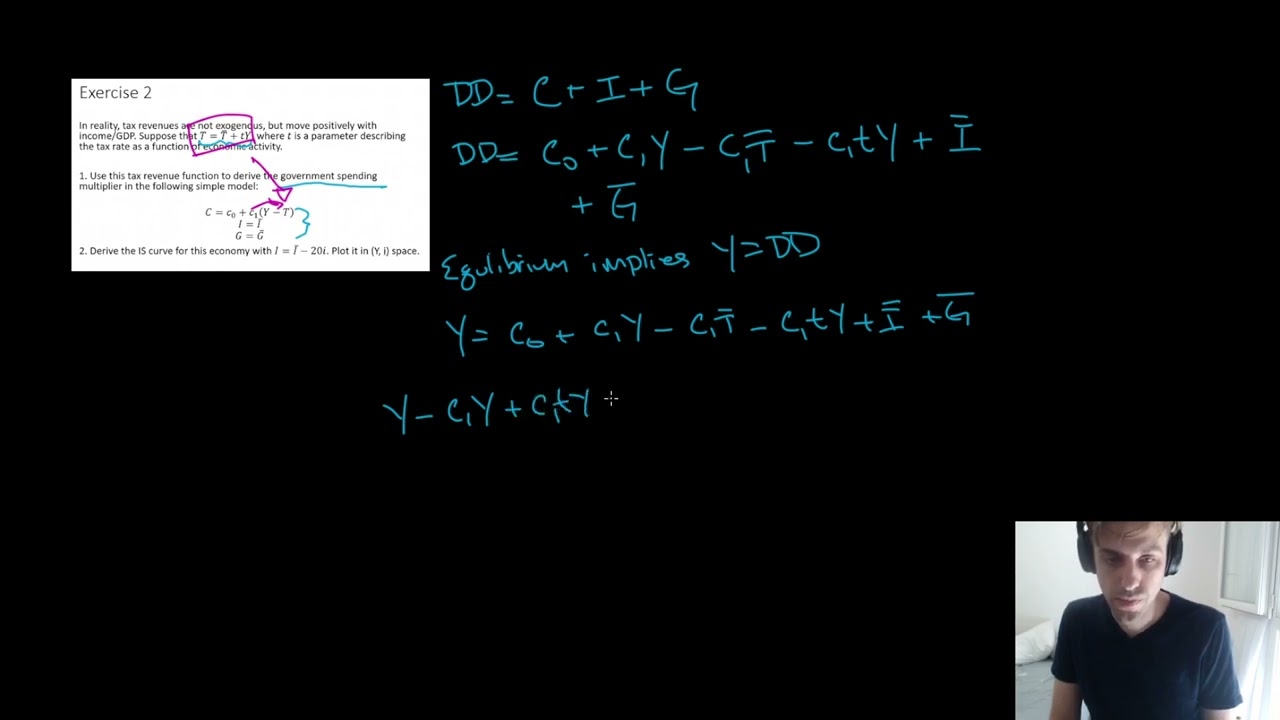 Exercise 2
In reality, tax revenues are not exogenous, but move positively with
income/GDP. Suppose that T = T̄ + tY, where t is a parameter describing
the tax rate as a function of economic activity.
1. Use this tax revenue function to derive the government spending
multiplier in the following simple model:
C = c₀ + c₁(Y − T)
I = Ī
G = Ḡ
2. Derive the IS curve for this economy with I = Ī − 20i. Plot it in (Y, i) space.
DD = C + I + G
DD = C₀ + C₁Y − C₁T̄ − C₁tY + Ī
+ Ḡ
Equlibrium implies Y = DD
Y = C₀ + C₁Y − C₁T̄ − C₁tY + Ī + Ḡ
Y − C₁Y + C₁tY